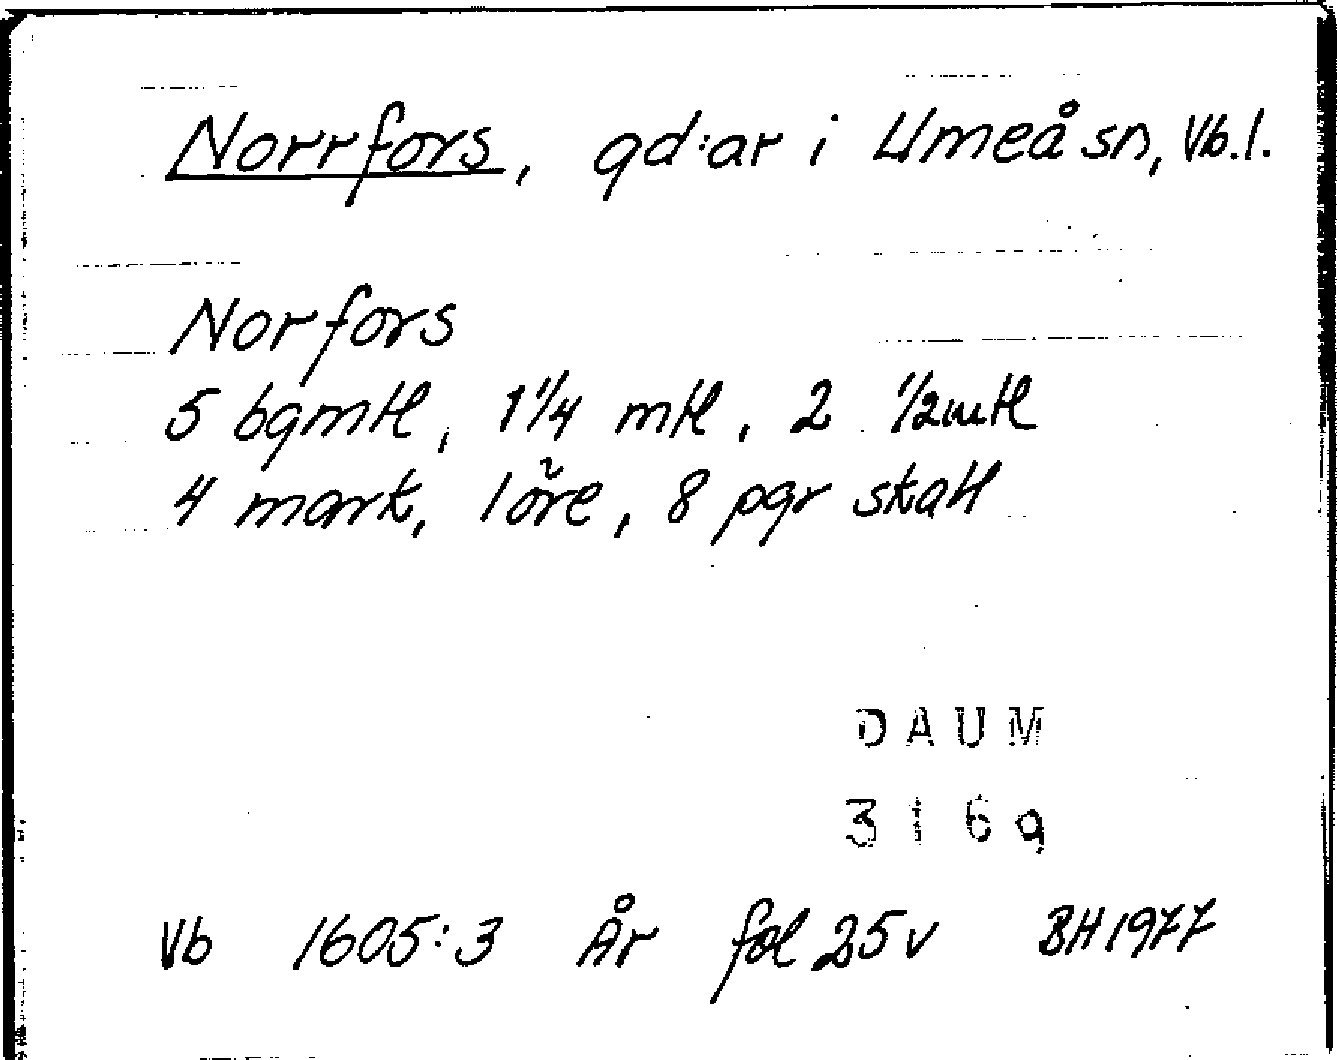 Norrfors, gd:ar i Umeå sn, Vb.l.
Norfors
5 bgmtl, 1 1/4 mtl, 2 1/2mtl
4 mark, 1 öre, 8 pgr skatt
DAUM
3169
Vb 1605:3 År fol 25v BH 1977